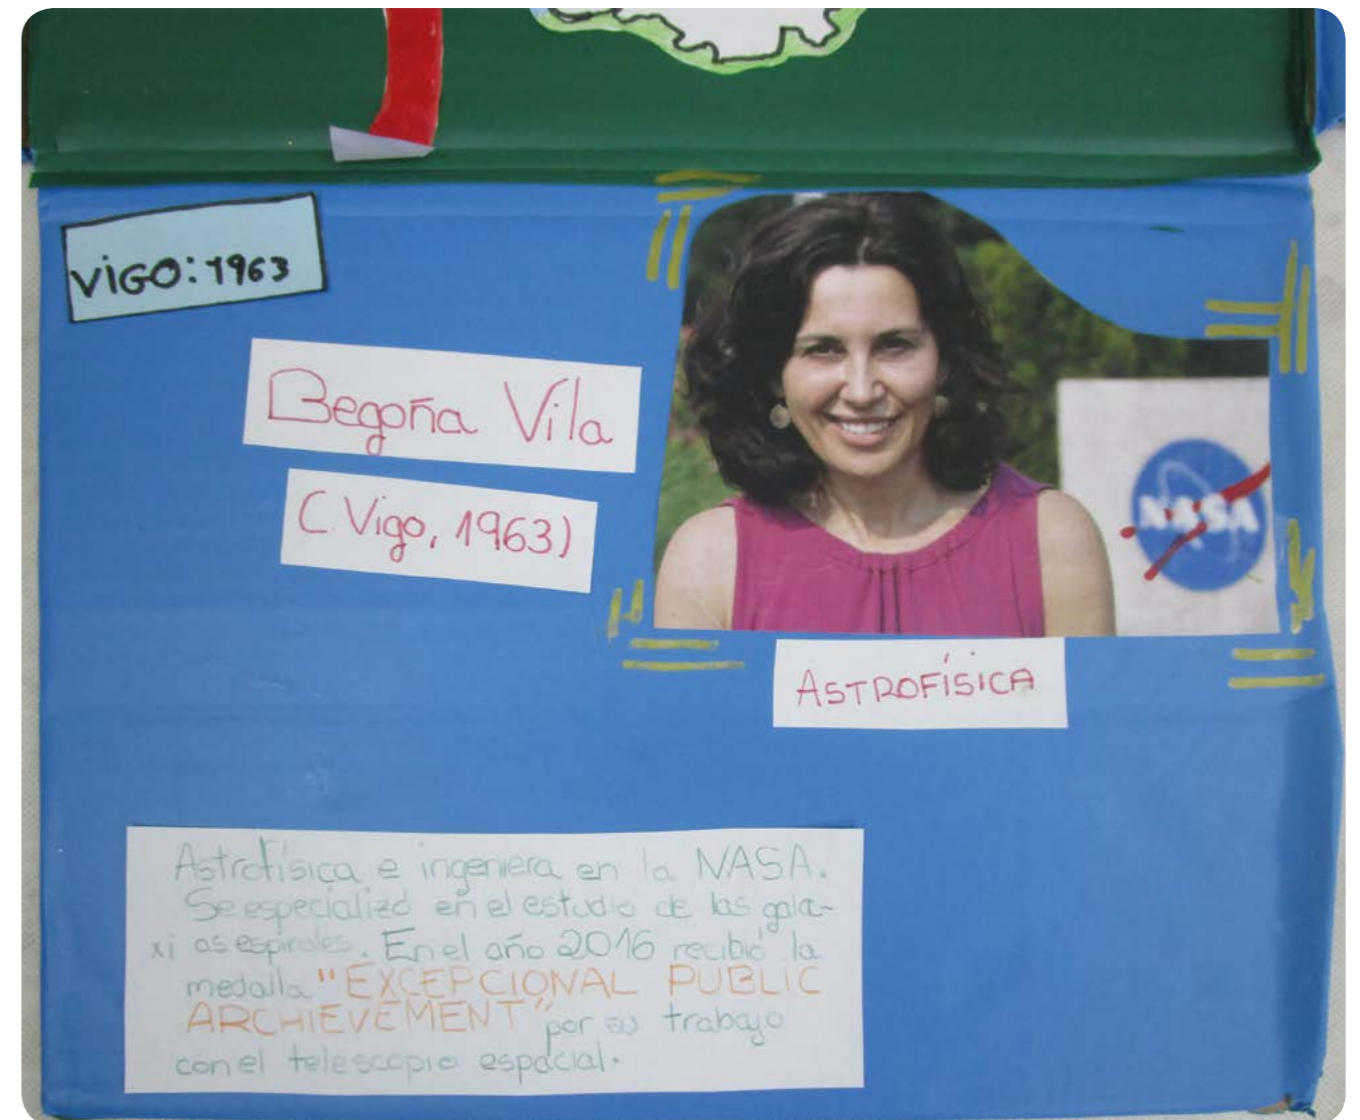 VIGO: 1963
Begoña Vila
(Vigo, 1963)
NASA
ASTROFÍSICA
Astrofísica e ingeniera en la NASA.
Se especializó en el estudio de las gala-
xias espirales. En el año 2016 recibió la
medalla "EXCEPCIONAL PUBLIC
ARCHIEVEMENT" por su trabajo
con el telescopio espacial.